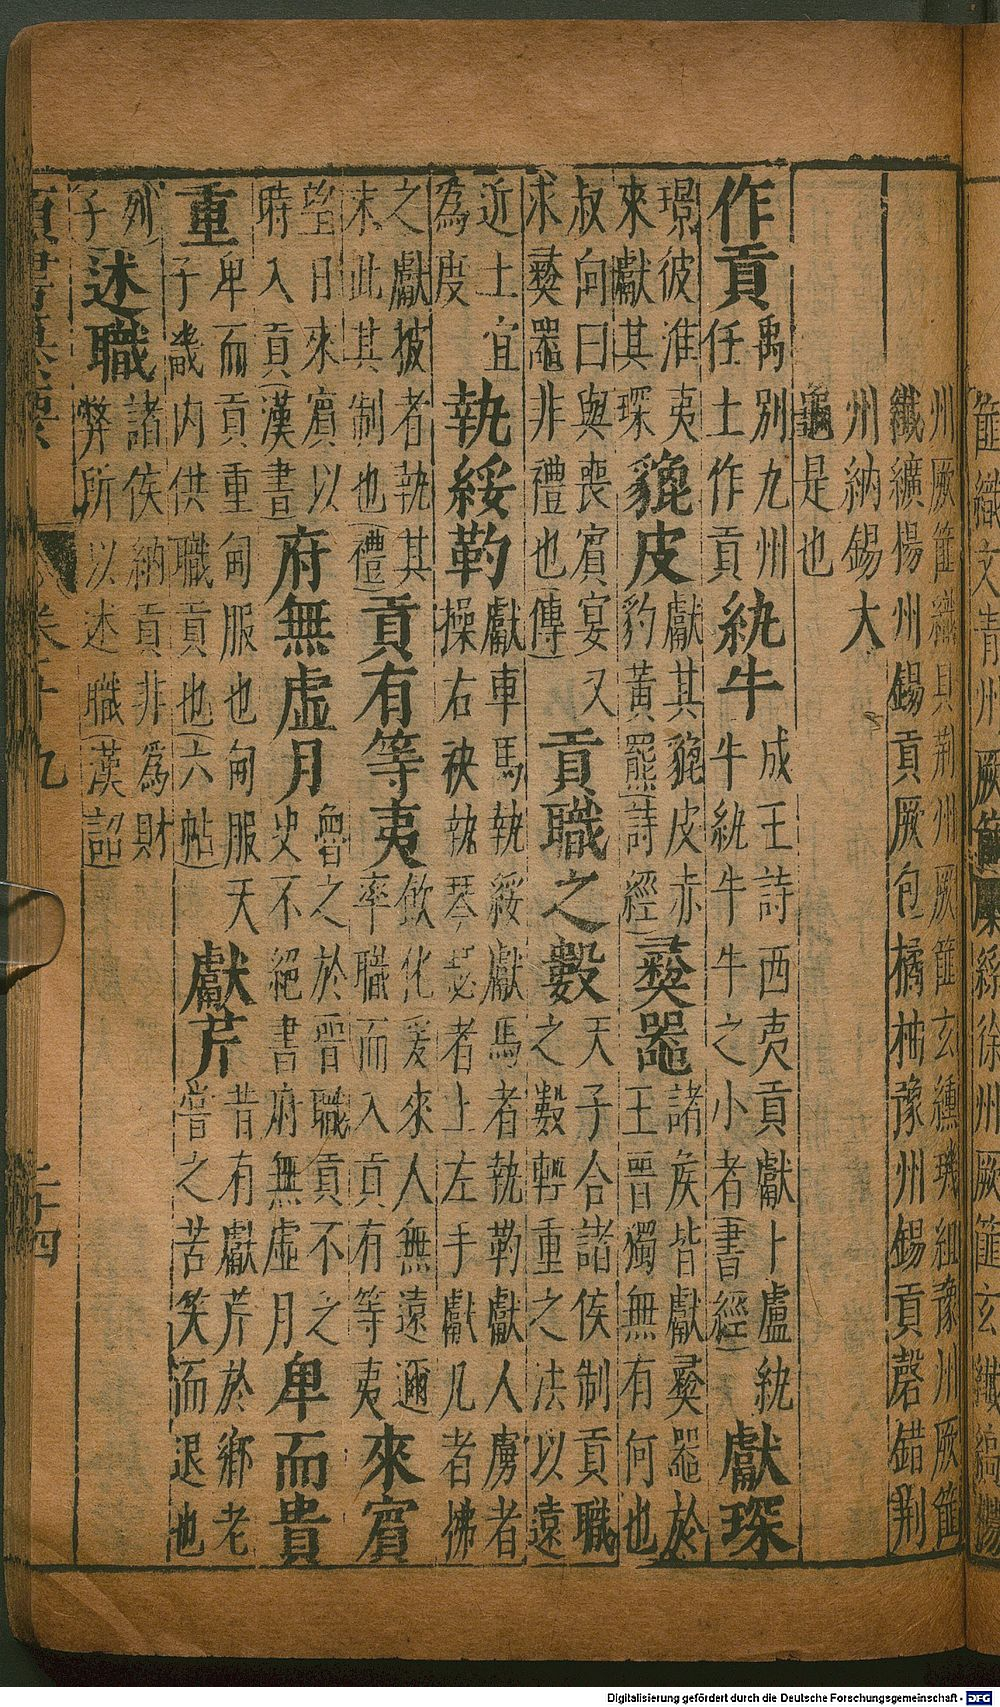 篚織文青州厥篚檿絲徐州厥篚玄纖縞揚
州厥篚織貝荆州厥篚玄纁璣組豫州厥篚
纖纊揚州錫貢厥包橘柚豫州錫貢磬錯荆
州納錫大
龜是也
作貢 禹別九州
任土作貢 紈牛 成王詩西夷貢獻卜盧紈
牛紈牛牛之小者(書經) 獻琛
璟彼淮夷
來獻其琛 貔皮 獻其貔皮赤
豹黃羆(詩經) 彝器 諸侯皆獻彝器於
王晉獨無有何也
叔向曰與喪賓宴又
求彝器非禮也(傳) 貢職之數 天子合諸侯制貢職
之數輕重之法以遠
近土宜
為度 執綏靮 獻車馬執綏獻馬者執靮獻人虜者
操右袂執琴瑟者上左手獻几者拂
之獻披者執其
末此其制也(禮) 貢有等夷 飲化爰來人無遠邇
率職而入貢有等夷 來賓
望日來賓以
時入貢(漢書) 府無虛月 魯之於晉職貢不之
史不絕書府無虛月 卑而貴
重 卑而貢重甸服也甸服天
子畿內供職貢也(六帖) 獻芹 昔有獻芹於鄉老
嘗之苦笑而退也
列
子 述職 諸侯納貢非為財
幣所以述職(漢詔)
卷十九 二十四
Digitalisierung gefördert durch die Deutsche Forschungsgemeinschaft - DFG